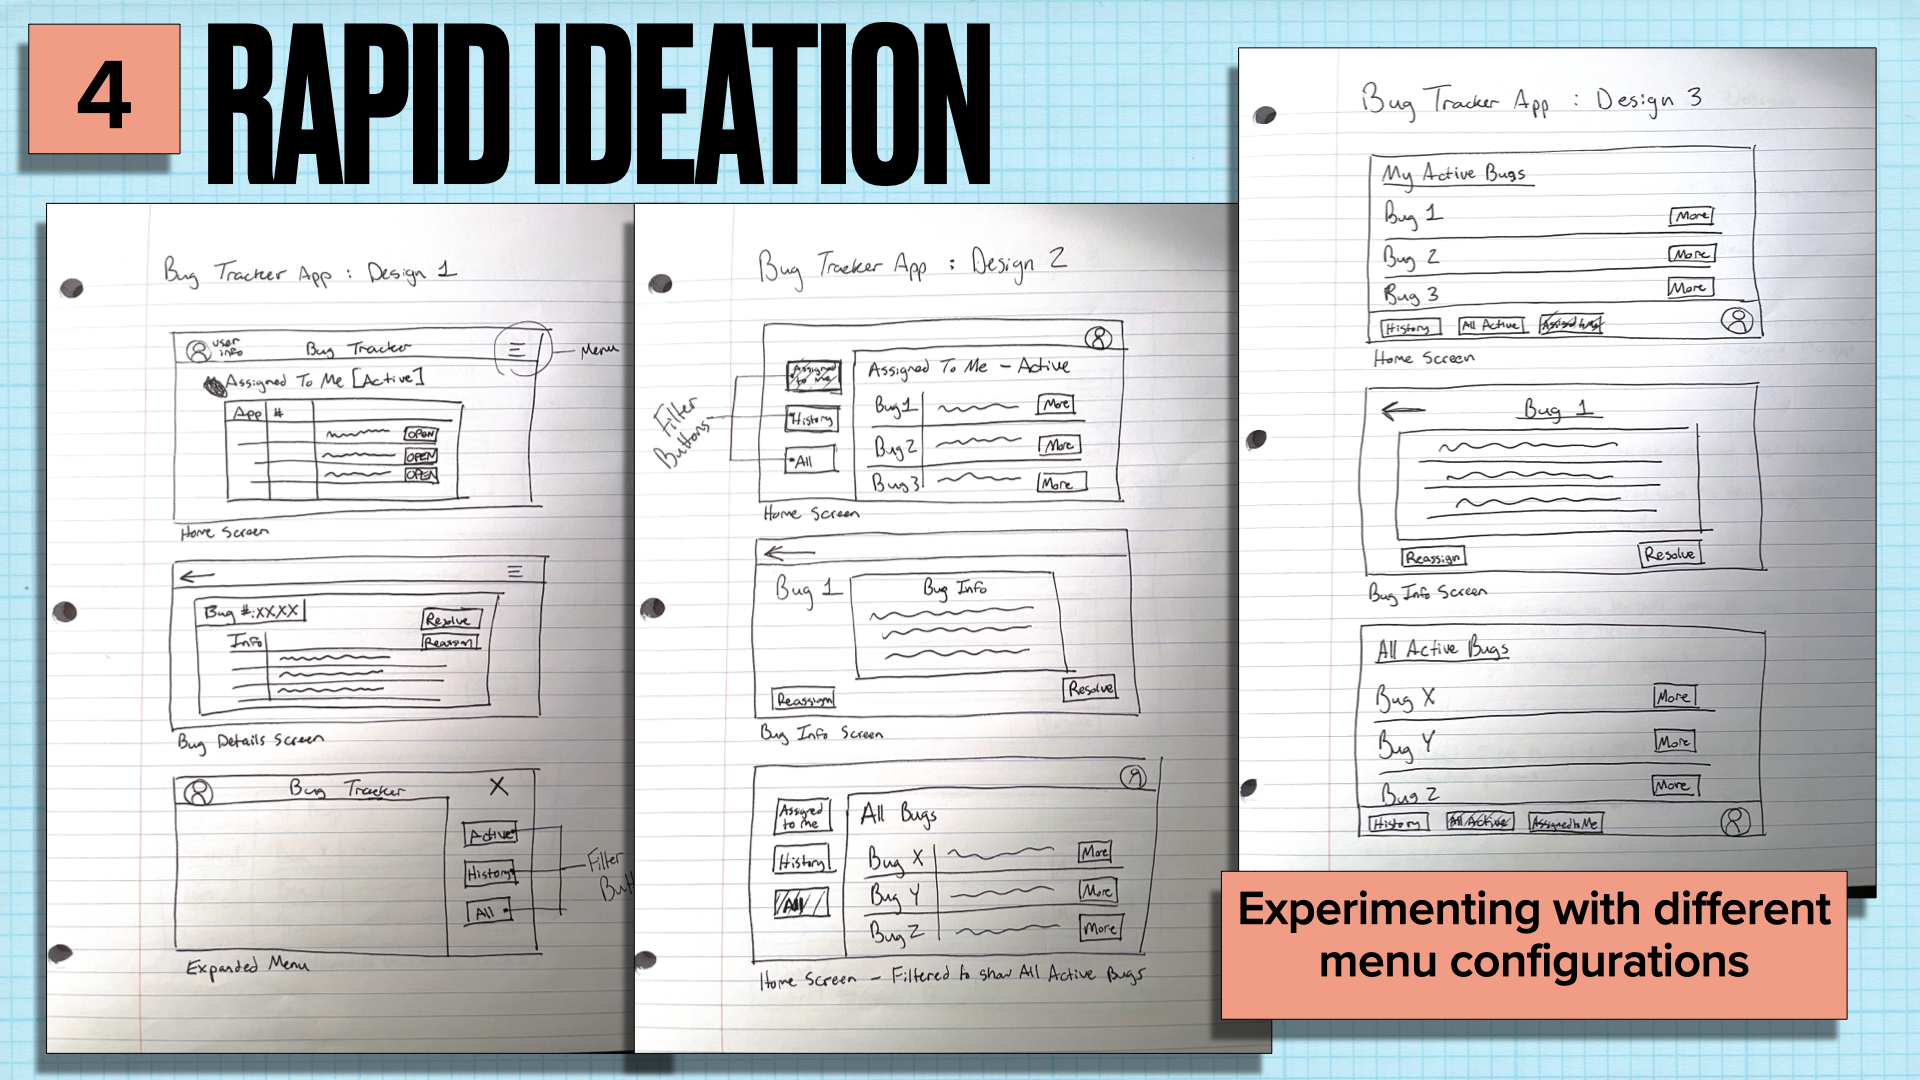 4
RAPID IDEATION
Bug Tracker App : Design 1
user
info
Bug Tracker
Menu
Assigned To Me [Active]
App #
OPEN
OPEN
OPEN
Home Screen
Bug #:XXXX
Resolve
Info
Reassign
Bug Details Screen
Bug Tracker
X
Active
History
All
Filter
But
Expanded Menu
Bug Tracker App : Design 2
Filter
Buttons
Assigned
to me
History
All
Assigned To Me - Active
Bug 1 More
Bug 2 More
Bug 3 More
Home Screen
Bug 1
Bug Info
Reassign
Resolve
Bug Info Screen
Assigned
to me
History
All
All Bugs
Bug X More
Bug Y More
Bug Z More
Home Screen - Filtered to show All Active Bugs
Bug Tracker App : Design 3
My Active Bugs
Bug 1 More
Bug 2 More
Bug 3 More
History All Active Assigned to Me
Home Screen
Bug 1
Reassign Resolve
Bug Info Screen
All Active Bugs
Bug X More
Bug Y More
Bug Z More
History All Active Assigned to Me
Experimenting with different
menu configurations